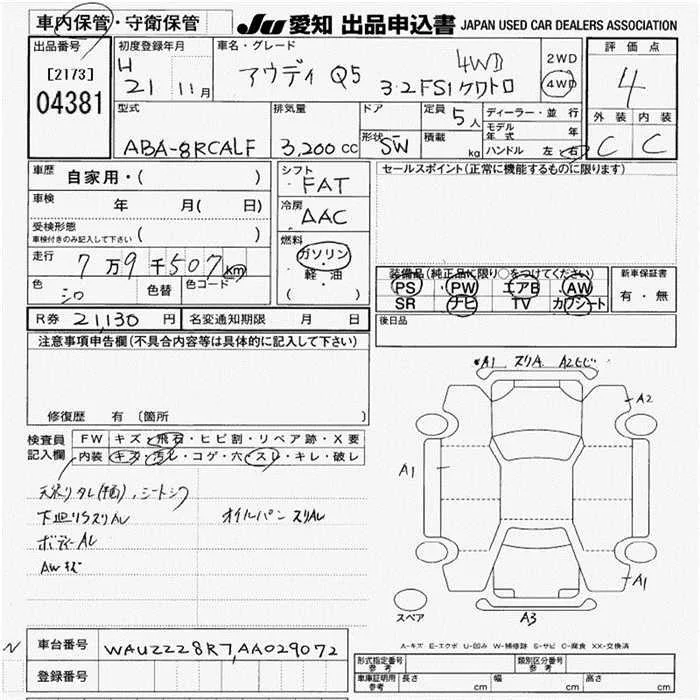 車内保管・守衛保管
JU 愛知 出品申込書 JAPAN USED CAR DEALERS ASSOCIATION
出品番号
[2173]
04381
初度登録年月
H 21 11月
車名・グレード
アウディ Q5 3.2FSI クワトロ 4WD
2WD
4WD
評価点
4
外装 内装
C C
型式
ABA-8RCALF
排気量
3,200 cc
ドア
形状 SW
定員 5人
積載 kg
ディーラー・並行
モデル年式 年
ハンドル 左・右
車歴 自家用・( )
車検 年 月( 日)
受検形態
車検付きのみ記入して下さい ( )
走行 7万9千507km
色 シロ 色替 色コード
シフト
FAT
冷房
AAC
燃料
ガソリン
軽・油
( )
セールスポイント(正常に機能するものに限ります)
装備品(純正品に限り○をつけてください)
PS PW エアB AW
SR ナビ TV カワシート
新車保証書
有・無
後日品
R券 21,130 円 名変通知期限 月 日
注意事項申告欄(不具合内容等は具体的に記入して下さい)
修復歴 有 〔箇所 〕
検査員記入欄
FW キズ・飛石・ヒビ割・リペア跡・X要
内装 キズ・汚レ・コゲ・穴・スレ・キレ・破レ
シートシワ
下廻りスリAL オイルパン スリAL
ボディーAL
AWキズ
A1 スリA A2
A2
A1
A1
A3
スペア
A-キズ E-エクボ U-凹み W-補修跡 S-サビ C-腐食 XX-交換済
N 車台番号 WAUZZZ8R7AA029072
登録番号
形式指定番号 参考 類別区分番号 参考
車庫証明用 参考 長さ cm 幅 cm 高さ cm